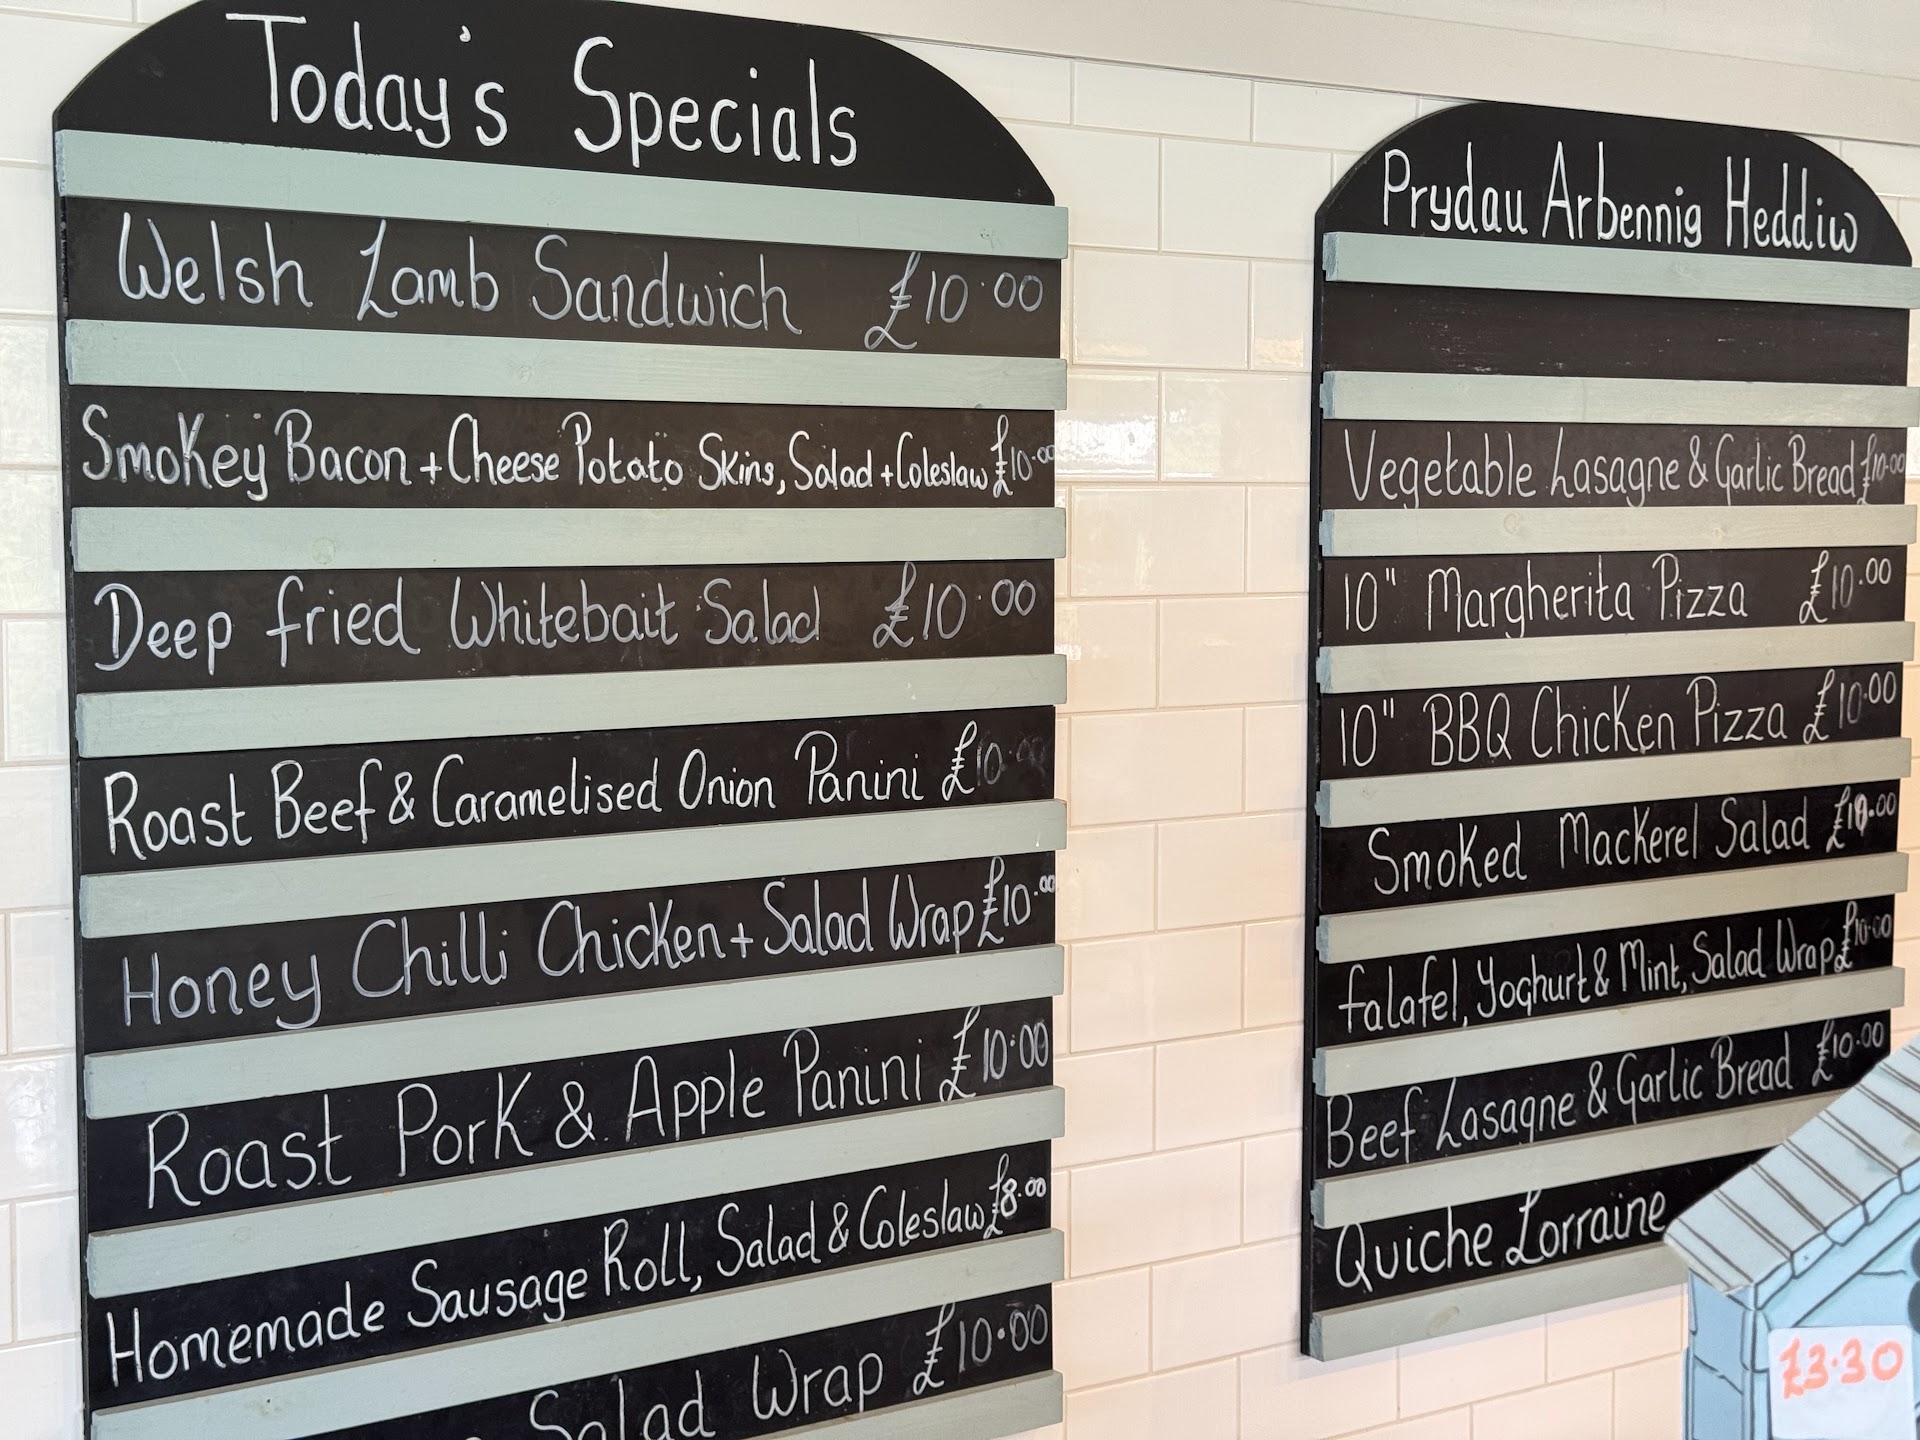 Today's Specials
Welsh Lamb Sandwich £10.00
Smokey Bacon + Cheese Potato Skins, Salad + Coleslaw £10.00
Deep fried Whitebait Salad £10.00
Roast Beef & Caramelised Onion Panini £10.00
Honey Chilli Chicken + Salad Wrap £10.00
Roast Pork & Apple Panini £10.00
Homemade Sausage Roll, Salad & Coleslaw £8.00
Salad Wrap £10.00
Prydau Arbennig Heddiw
Vegetable Lasagne & Garlic Bread £10.00
10" Margherita Pizza £10.00
10" BBQ Chicken Pizza £10.00
Smoked Mackerel Salad £10.00
falafel, Yoghurt & Mint, Salad Wrap £10.00
Beef Lasagne & Garlic Bread £10.00
Quiche Lorraine
£3.30